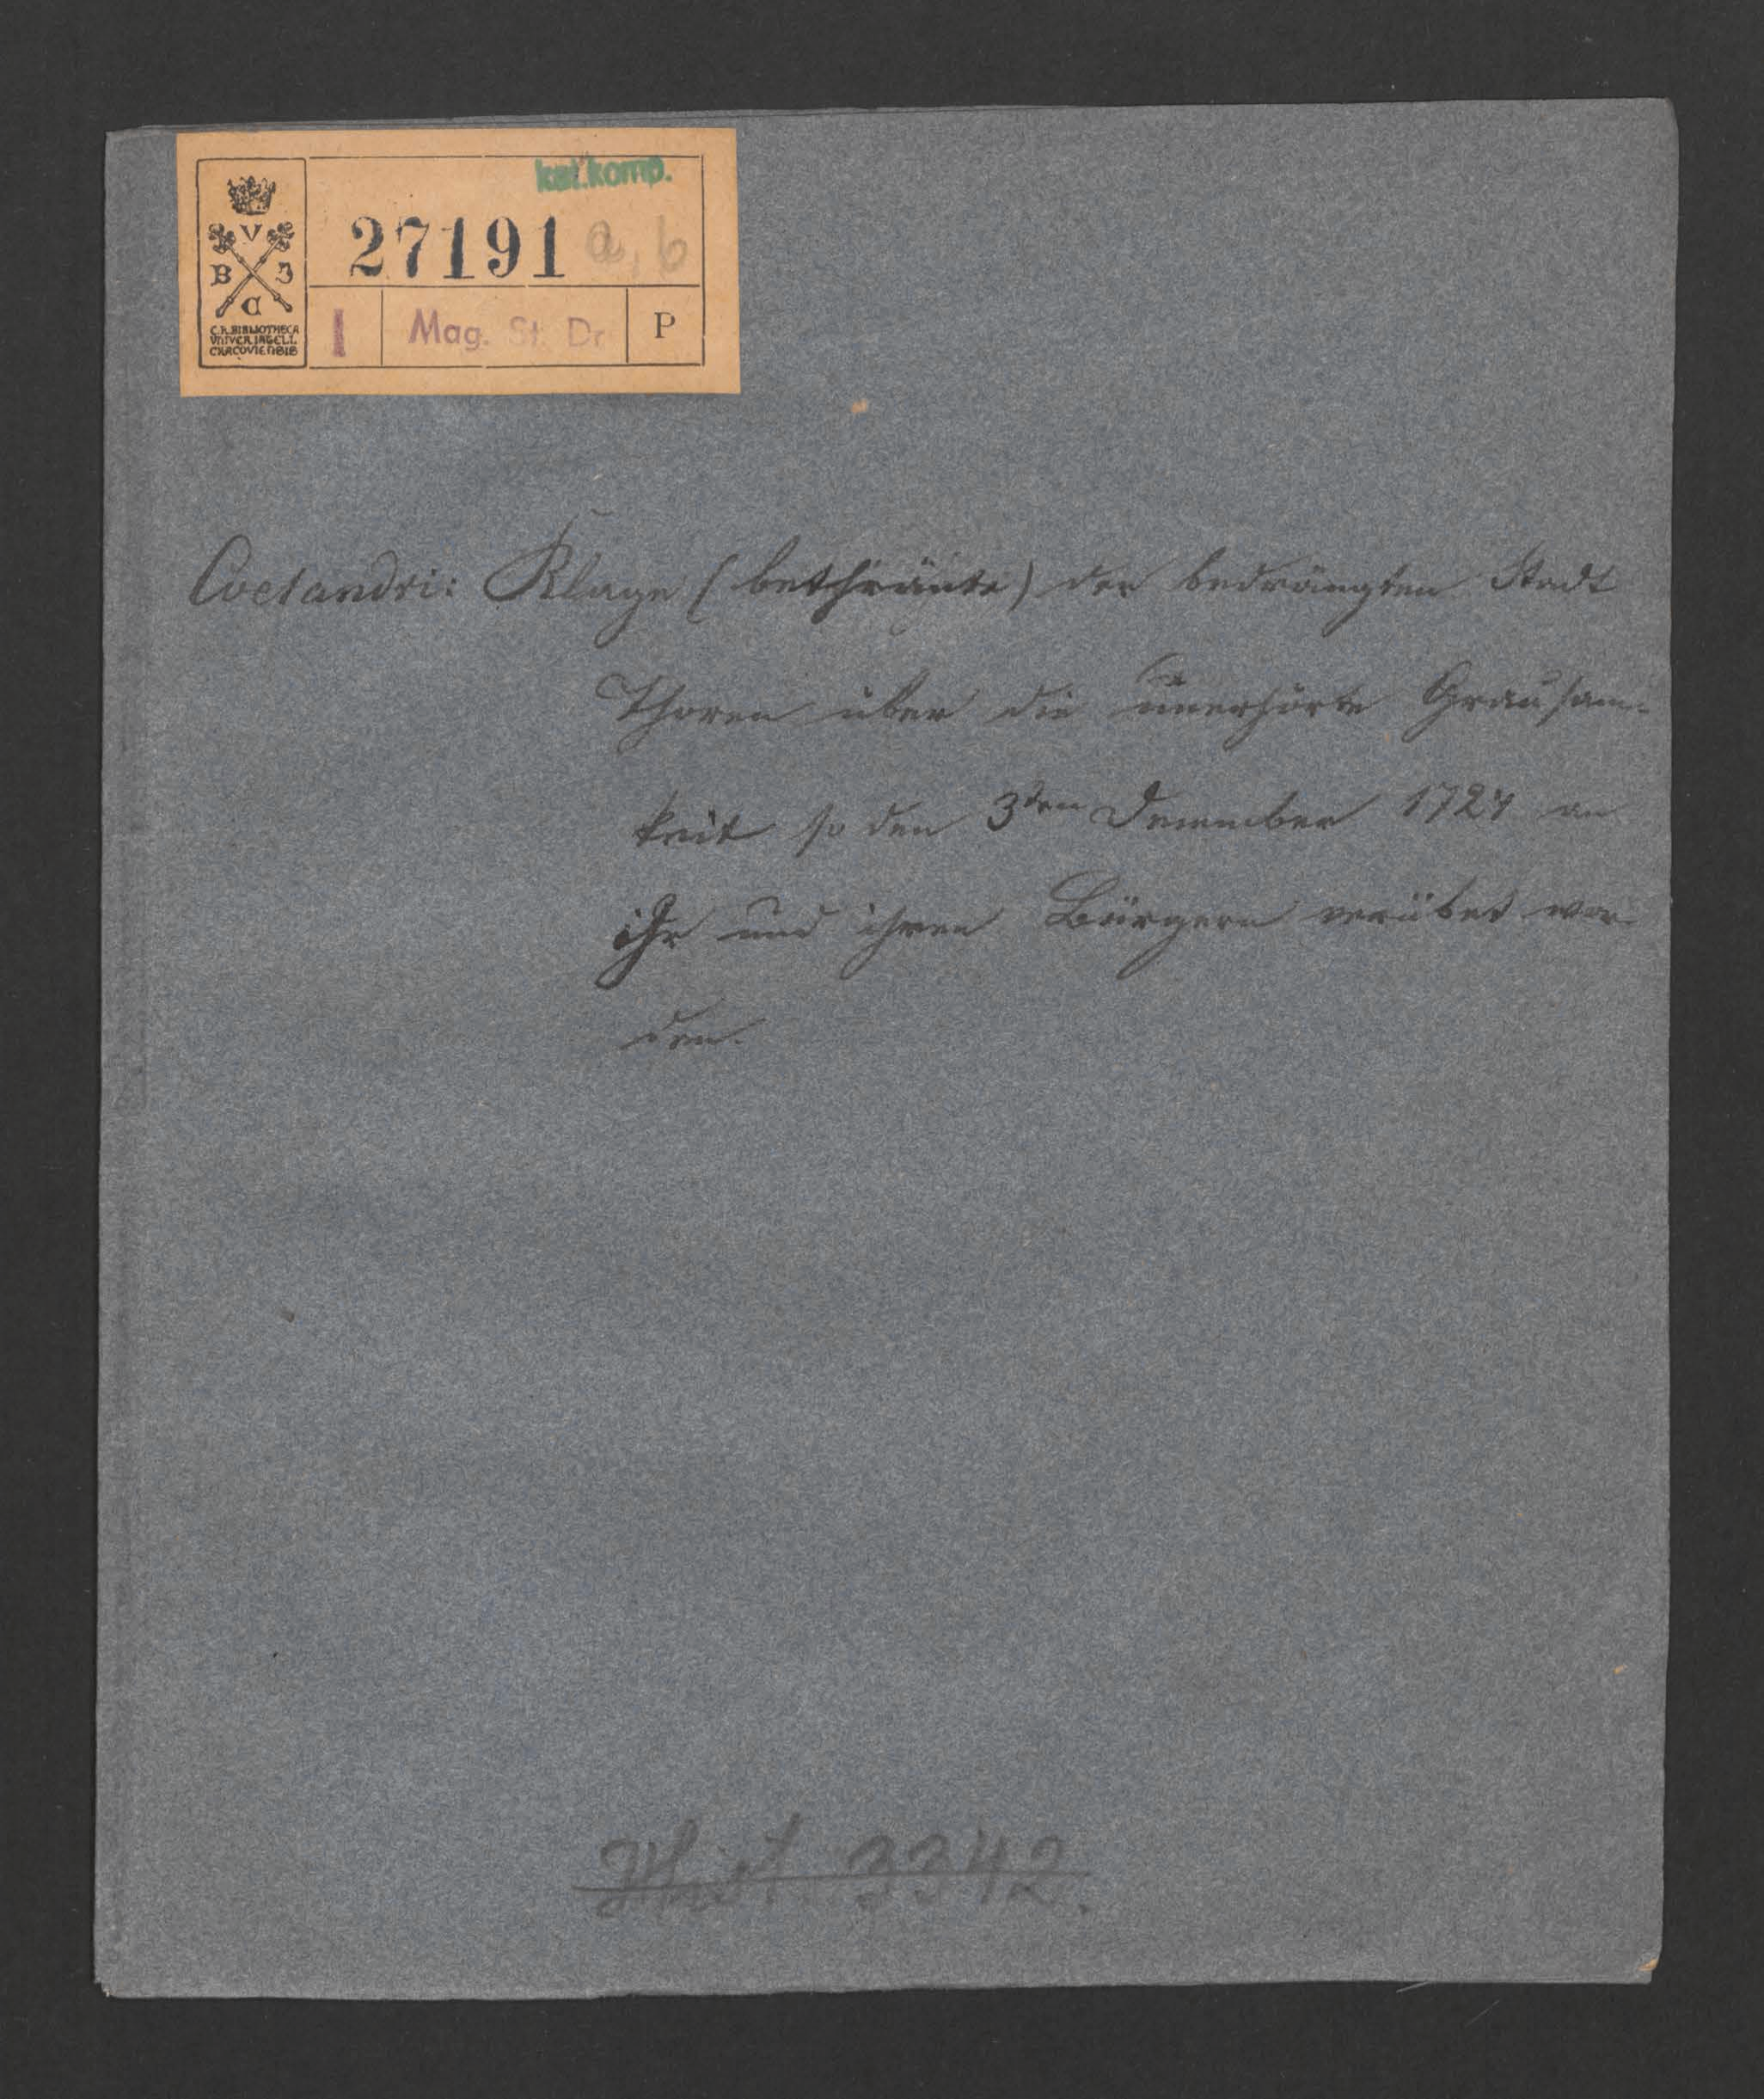 kat.komp.
V
B J
C
27191 a, b
C.R.BIBLIOTHECA
VNIVER.IAGELL.
CRACOVIENSIS
I Mag. St. Dr. P
Coelandri: Klage (bethränte) der bedrängten Stadt
Thoren über die unerhörte Grausam-
keit so den 3ten Dezember 1724 an
ihr und ihren Bürgern verübet wor-
den.
Hist. 3342.